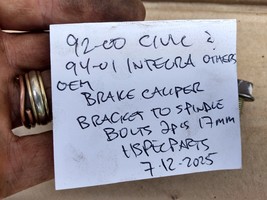 92-00 CIVIC &
94-01 INTEGRA OTHERS
OEM
BRAKE CALIPER
BRACKET TO SPINDLE
BOLTS 2pcs 17mm
HSPECPARTS
7.12-2025